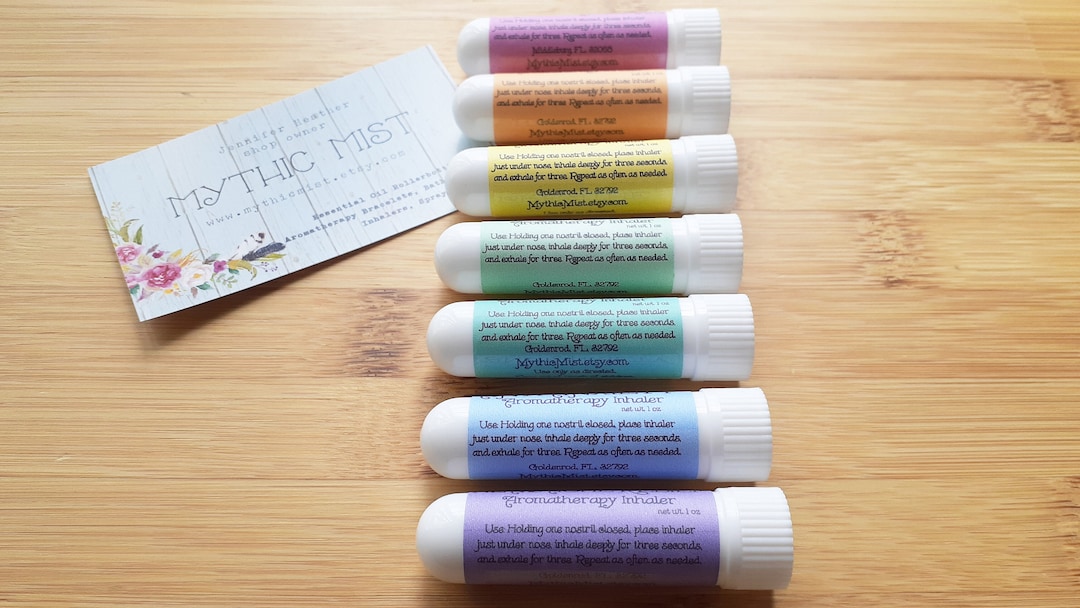 Jennifer Heather
shop owner
MYTHIC MIST
www.mythicmist.etsy.com
Essential Oil Rollerballs
Aromatherapy Bracelets, Bath
Inhalers, Spray
Use: Holding one nostril closed, place inhaler
just under nose, inhale deeply for three seconds,
and exhale for three. Repeat as often as needed.
Middleburg, FL, 32068
MythicMist.etsy.com
net wt. 1 oz
Use: Holding one nostril closed, place inhaler
just under nose, inhale deeply for three seconds,
and exhale for three. Repeat as often as needed.
Goldenrod, FL, 32792
MythicMist.etsy.com
net wt. 1 oz
Use: Holding one nostril closed, place inhaler
just under nose, inhale deeply for three seconds,
and exhale for three. Repeat as often as needed.
Goldenrod, FL, 32792
MythicMist.etsy.com
Use only as directed.
Aromatherapy Inhaler
net wt. 1 oz
Use: Holding one nostril closed, place inhaler
just under nose, inhale deeply for three seconds,
and exhale for three. Repeat as often as needed.
Goldenrod, FL, 32792
MythicMist.etsy.com
Aromatherapy Inhaler
net wt. 1 oz
Use: Holding one nostril closed, place inhaler
just under nose, inhale deeply for three seconds,
and exhale for three. Repeat as often as needed.
Goldenrod, FL, 32792
MythicMist.etsy.com
Use only as directed.
Aromatherapy Inhaler
net wt. 1 oz
Use: Holding one nostril closed, place inhaler
just under nose, inhale deeply for three seconds,
and exhale for three. Repeat as often as needed.
Goldenrod, FL, 32792
MythicMist.etsy.com
Aromatherapy Inhaler
net wt. 1 oz
Use: Holding one nostril closed, place inhaler
just under nose, inhale deeply for three seconds,
and exhale for three. Repeat as often as needed.